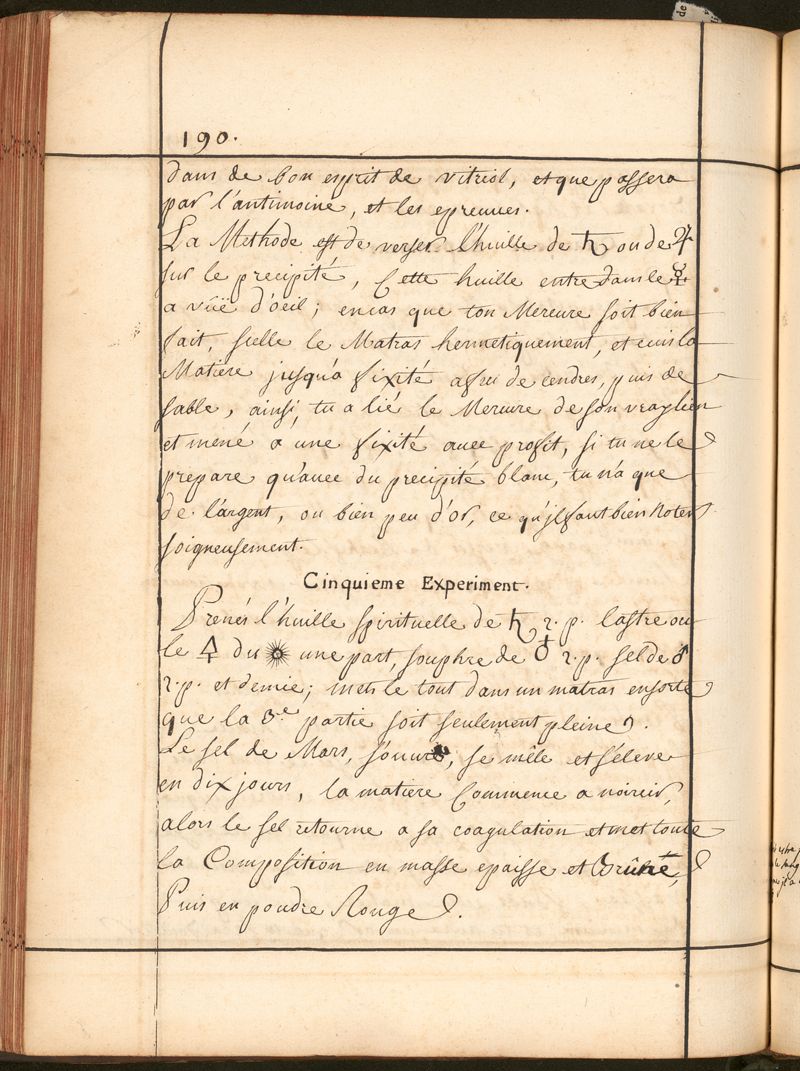 190.
dans de bon esprit de vitriol, et que passera
par l'antimoine, et les epreuues.
La Methode est de verser l'huille de ♄ ou de ♃
sur le precipité, Cette huille entre dans le ☿
a vüe d'oeil; encas que ton Mercure soit bien
fait, scelle le Matras hermetiquement, et cuis la
Matiere jusqu'a fixité a feu de cendres, puis de
sable, ainsi, tu a lié le Mercure de son vray lien
et mené a une fixité auec profit, si tu ne le
prepare qu'auec du precipité blanc, tu n'a que
de l'argent, ou bien peu d'or, ce qu'jl faut bien Noter
soigneusement.
Cinquieme Experiment.
Prenés l'huille spirituelle de ♄ 2. p. lastre ou
le 🜍 du ☼ une part, souphre de ♁ 2. p. sel de ♂
2. p. et demie; mets le tout dans un matras ensorte
que la 3.e partie soit seulement pleine.
Le sel de Mars, s'ouure, se mêle et s'éleve
en dix jours, la matiere Commence a noircir,
alors le sel retourne a sa coagulation et met toute
la Composition en masse epaisse et
Puis en poudre Rouge.